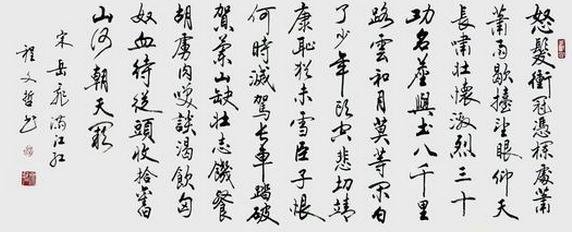 怒髮衝冠憑欄處蕭
蕭雨歇擡望眼仰天
長嘯壯懷激烈三十
功名塵與土八千里
路雲和月莫等閑白
了少年頭空悲切靖
康恥猶未雪臣子恨
何時滅駕長車踏破
賀蘭山缺壯志饑餐
胡虜肉笑談渴飲匈
奴血待從頭收拾舊
山河朝天闕
宋岳飛滿江紅
程文哲書